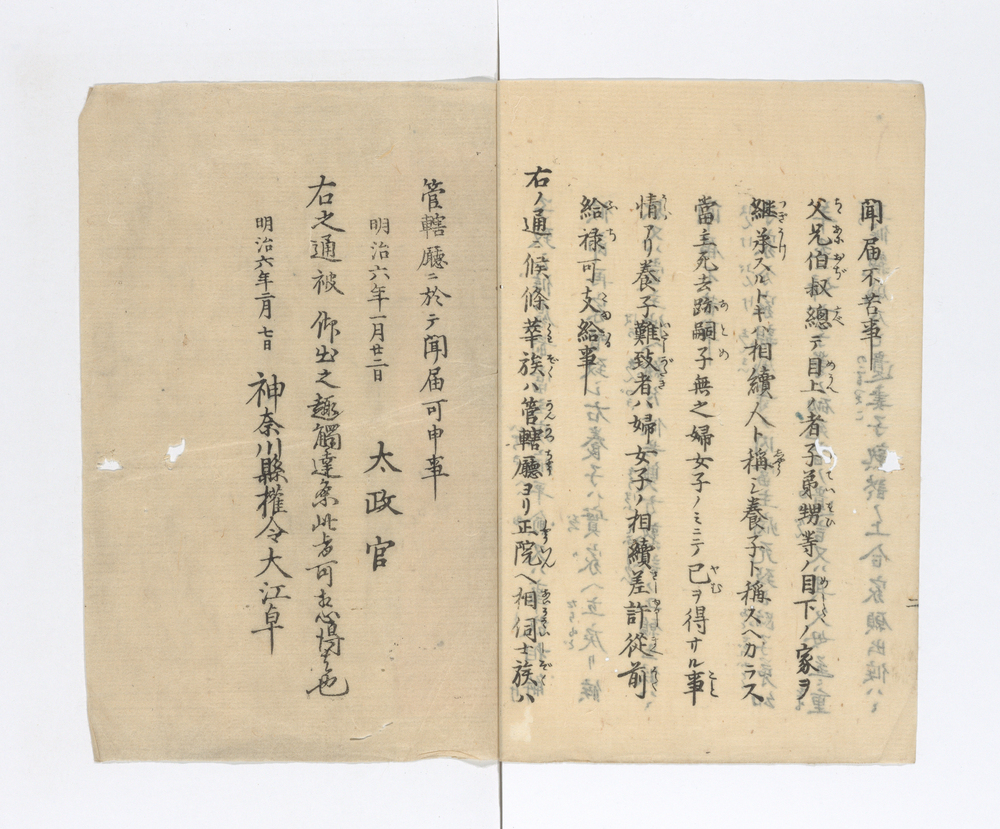 聞届不苦事
父兄伯叔總テ目上ノ者子弟甥等ノ目下ノ家ヲ
継承スルトキハ相續人ト稱シ養子ト稱スヘカラス
當主死去跡嗣子無之婦女子ノミニテ已ヲ得サル事
情アリ養子難致者ハ婦女子ノ相續差許従前
給禄可支給事
右ノ通候條華族ハ管轄廳ヨリ正院ヘ相伺士族ハ
管轄廳ニ於テ聞届可申事
明治六年一月廿二日
太政官
右之通被仰出之趣觸達条此旨可相心得者也
明治六年二月七日
神奈川縣權令大江卓